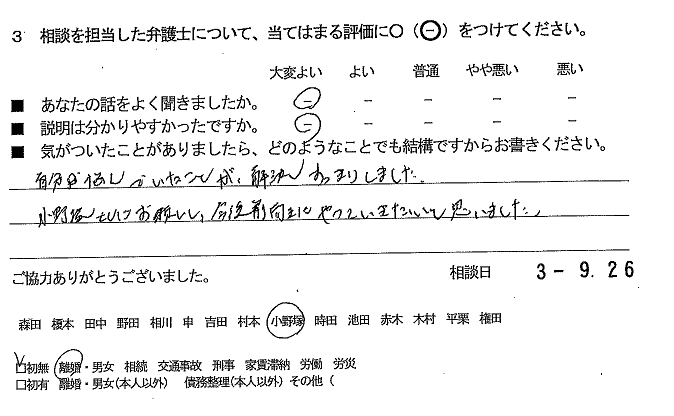 3 相談を担当した弁護士について、当てはまる評価に○(㊀)をつけてください。
大変よい よい 普通 やや悪い 悪い
■ あなたの話をよく聞きましたか。 − − − − −
■ 説明は分かりやすかったですか。 − − − − −
■ 気がついたことがありましたら、どのようなことでも結構ですからお書きください。
自分が悩んでいたことが、解決 しました。
小野塚 にお願いし、今後前向きにやっていきたいと思いました。
ご協力ありがとうございました。 相談日 3-9.26
森田 榎本 田中 野田 相川 申 吉田 村本 小野塚 時田 池田 赤木 木村 平栗 権田
□初無 離婚・男女 相続 交通事故 刑事 家賃滞納 労働 労災
□初有 離婚・男女(本人以外) 債務整理(本人以外) その他(